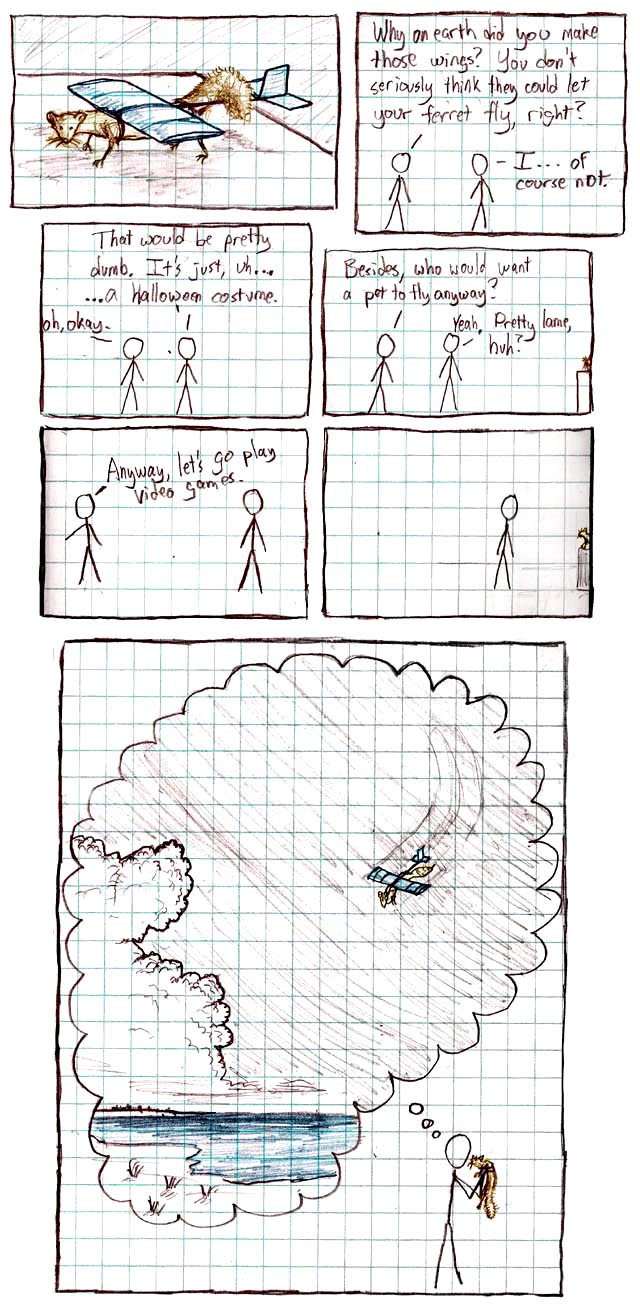 Why on earth did you make
those wings? You don't
seriously think they could let
your ferret fly, right?
I... of
course not.
That would be pretty
dumb. It's just, uh...
...a halloween costume.
oh, okay.
Besides, who would want
a pet to fly anyway?
Yeah. Pretty lame,
huh?
Anyway, let's go play
video games.